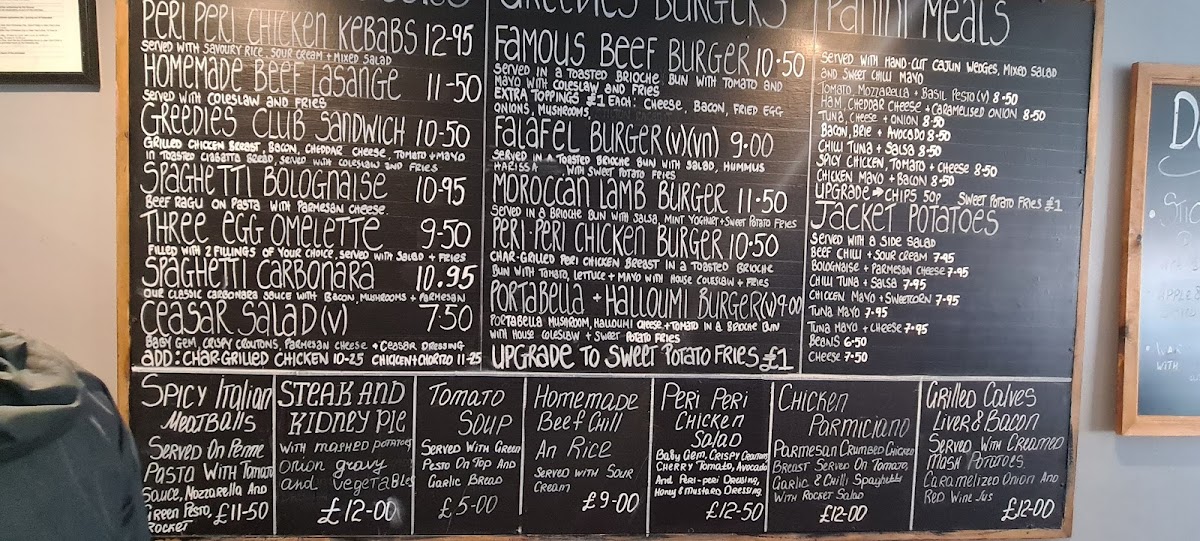 PERI PERI CHICKEN KEBABS 12-95
SERVED WITH SAVOURY RICE, SOUR CREAM + MIXED SALAD
HOMEMADE BEEF LASANGE 11-50
SERVED WITH COLESLAW AND FRIES
GREEDIES CLUB SANDWICH 10-50
GRILLED CHICKEN BREAST, BACON, CHEDDAR CHEESE, TOMATO + MAYO
IN TOASTED CIABATTA BREAD, SERVED WITH COLESLAW AND FRIES
SPAGHETTI BOLOGNAISE 10.95
BEEF RAGU ON PASTA WITH PARMESAN CHEESE.
THREE EGG OMELETTE 9-50
FILLED WITH 2 FILLINGS OF YOUR CHOICE, SERVED WITH SALAD + FRIES
SPAGHETTI CARBONARA 10.95
OUR CLASSIC CARBONARA SAUCE WITH BACON, MUSHROOMS + PARMESAN
CEASAR SALAD (V) 7.50
BABY GEM, CRISPY CROUTONS, PARMESAN CHEESE + CEASAR DRESSING
ADD: CHAR-GRILLED CHICKEN 10-25 CHICKEN + CHORIZO 11-25
GREEDIES BURGERS
FAMOUS BEEF BURGER 10.50
SERVED IN A TOASTED BRIOCHE BUN WITH TOMATO AND
MAYO WITH COLESLAW AND FRIES
EXTRA TOPPINGS £1 EACH: CHEESE, BACON, FRIED EGG
ONIONS, MUSHROOMS,
FALAFEL BURGER (V)(VN) 9.00
SERVED IN A TOASTED BRIOCHE BUN WITH SALAD, HUMMUS
HARISSA WITH SWEET POTATO FRIES
MOROCCAN LAMB BURGER 11.50
SERVED IN A BRIOCHE BUN WITH SALSA, MINT YOGHURT + SWEET POTATO FRIES
PERI-PERI CHICKEN BURGER 10.50
CHAR-GRILLED PERI CHICKEN BREAST IN A TOASTED BRIOCHE
BUN WITH TOMATO, LETTUCE + MAYO WITH HOUSE COLESLAW + FRIES
PORTABELLA + HALLOUMI BURGER (V) 9.00
PORTABELLA MUSHROOM, HALLOUMI CHEESE + TOMATO IN A BRIOCHE BUN
WITH HOUSE COLESLAW + SWEET POTATO FRIES
UPGRADE TO SWEET POTATO FRIES £1
PANINI MEALS
SERVED WITH HAND-CUT CAJUN WEDGES, MIXED SALAD
AND SWEET CHILLI MAYO
TOMATO, MOZZARELLA + BASIL PESTO (V) 8.50
HAM, CHEDDAR CHEESE + CARAMELISED ONION 8.50
TUNA, CHEESE + ONION 8.50
BACON, BRIE + AVOCADO 8.50
CHILLI TUNA + SALSA 8.50
SPICY CHICKEN, TOMATO + CHEESE 8.50
CHICKEN MAYO + BACON 8.50
UPGRADE → CHIPS 50P SWEET POTATO FRIES £1
JACKET POTATOES
SERVED WITH A SIDE SALAD
BEEF CHILLI + SOUR CREAM 7.95
BOLOGNAISE + PARMESAN CHEESE 7.95
CHILLI TUNA + SALSA 7.95
CHICKEN MAYO + SWEETCORN 7.95
TUNA MAYO 7.95
TUNA MAYO + CHEESE 7.95
BEANS 6.50
CHEESE 7.50
SPICY ITALIAN
MEATBALLS
SERVED ON PENNE
PASTA WITH TOMATO
SAUCE, MOZZARELLA AND
GREEN PESTO, £11-50
ROCKET
STEAK AND
KIDNEY PIE
WITH MASHED POTATOES
ONION GRAVY
AND VEGETABLES
£12-00
TOMATO
SOUP
SERVED WITH GREEN
PESTO ON TOP AND
GARLIC BREAD
£5-00
HOMEMADE
BEEF CHILL
AN RICE
SERVED WITH SOUR
CREAM
£9-00
PERI PERI
CHICKEN
SALAD
BABY GEM, CRISPY CROUTONS,
CHERRY TOMATO, AVOCADO
AND PERI-PERI DRESSING,
HONEY & MUSTARD DRESSING.
£12-50
CHICKEN
PARMICIANO
PARMESAN CRUMBED CHICKEN
BREAST SERVED ON TOMATO,
GARLIC & CHILLI SPAGHETTI
WITH ROCKET SALAD
£12-00
GRILLED CALVES
LIVER & BACON
SERVED WITH CREAMED
MASH POTATOES,
CARAMELIZED ONION AND
RED WINE JUS
£12-00